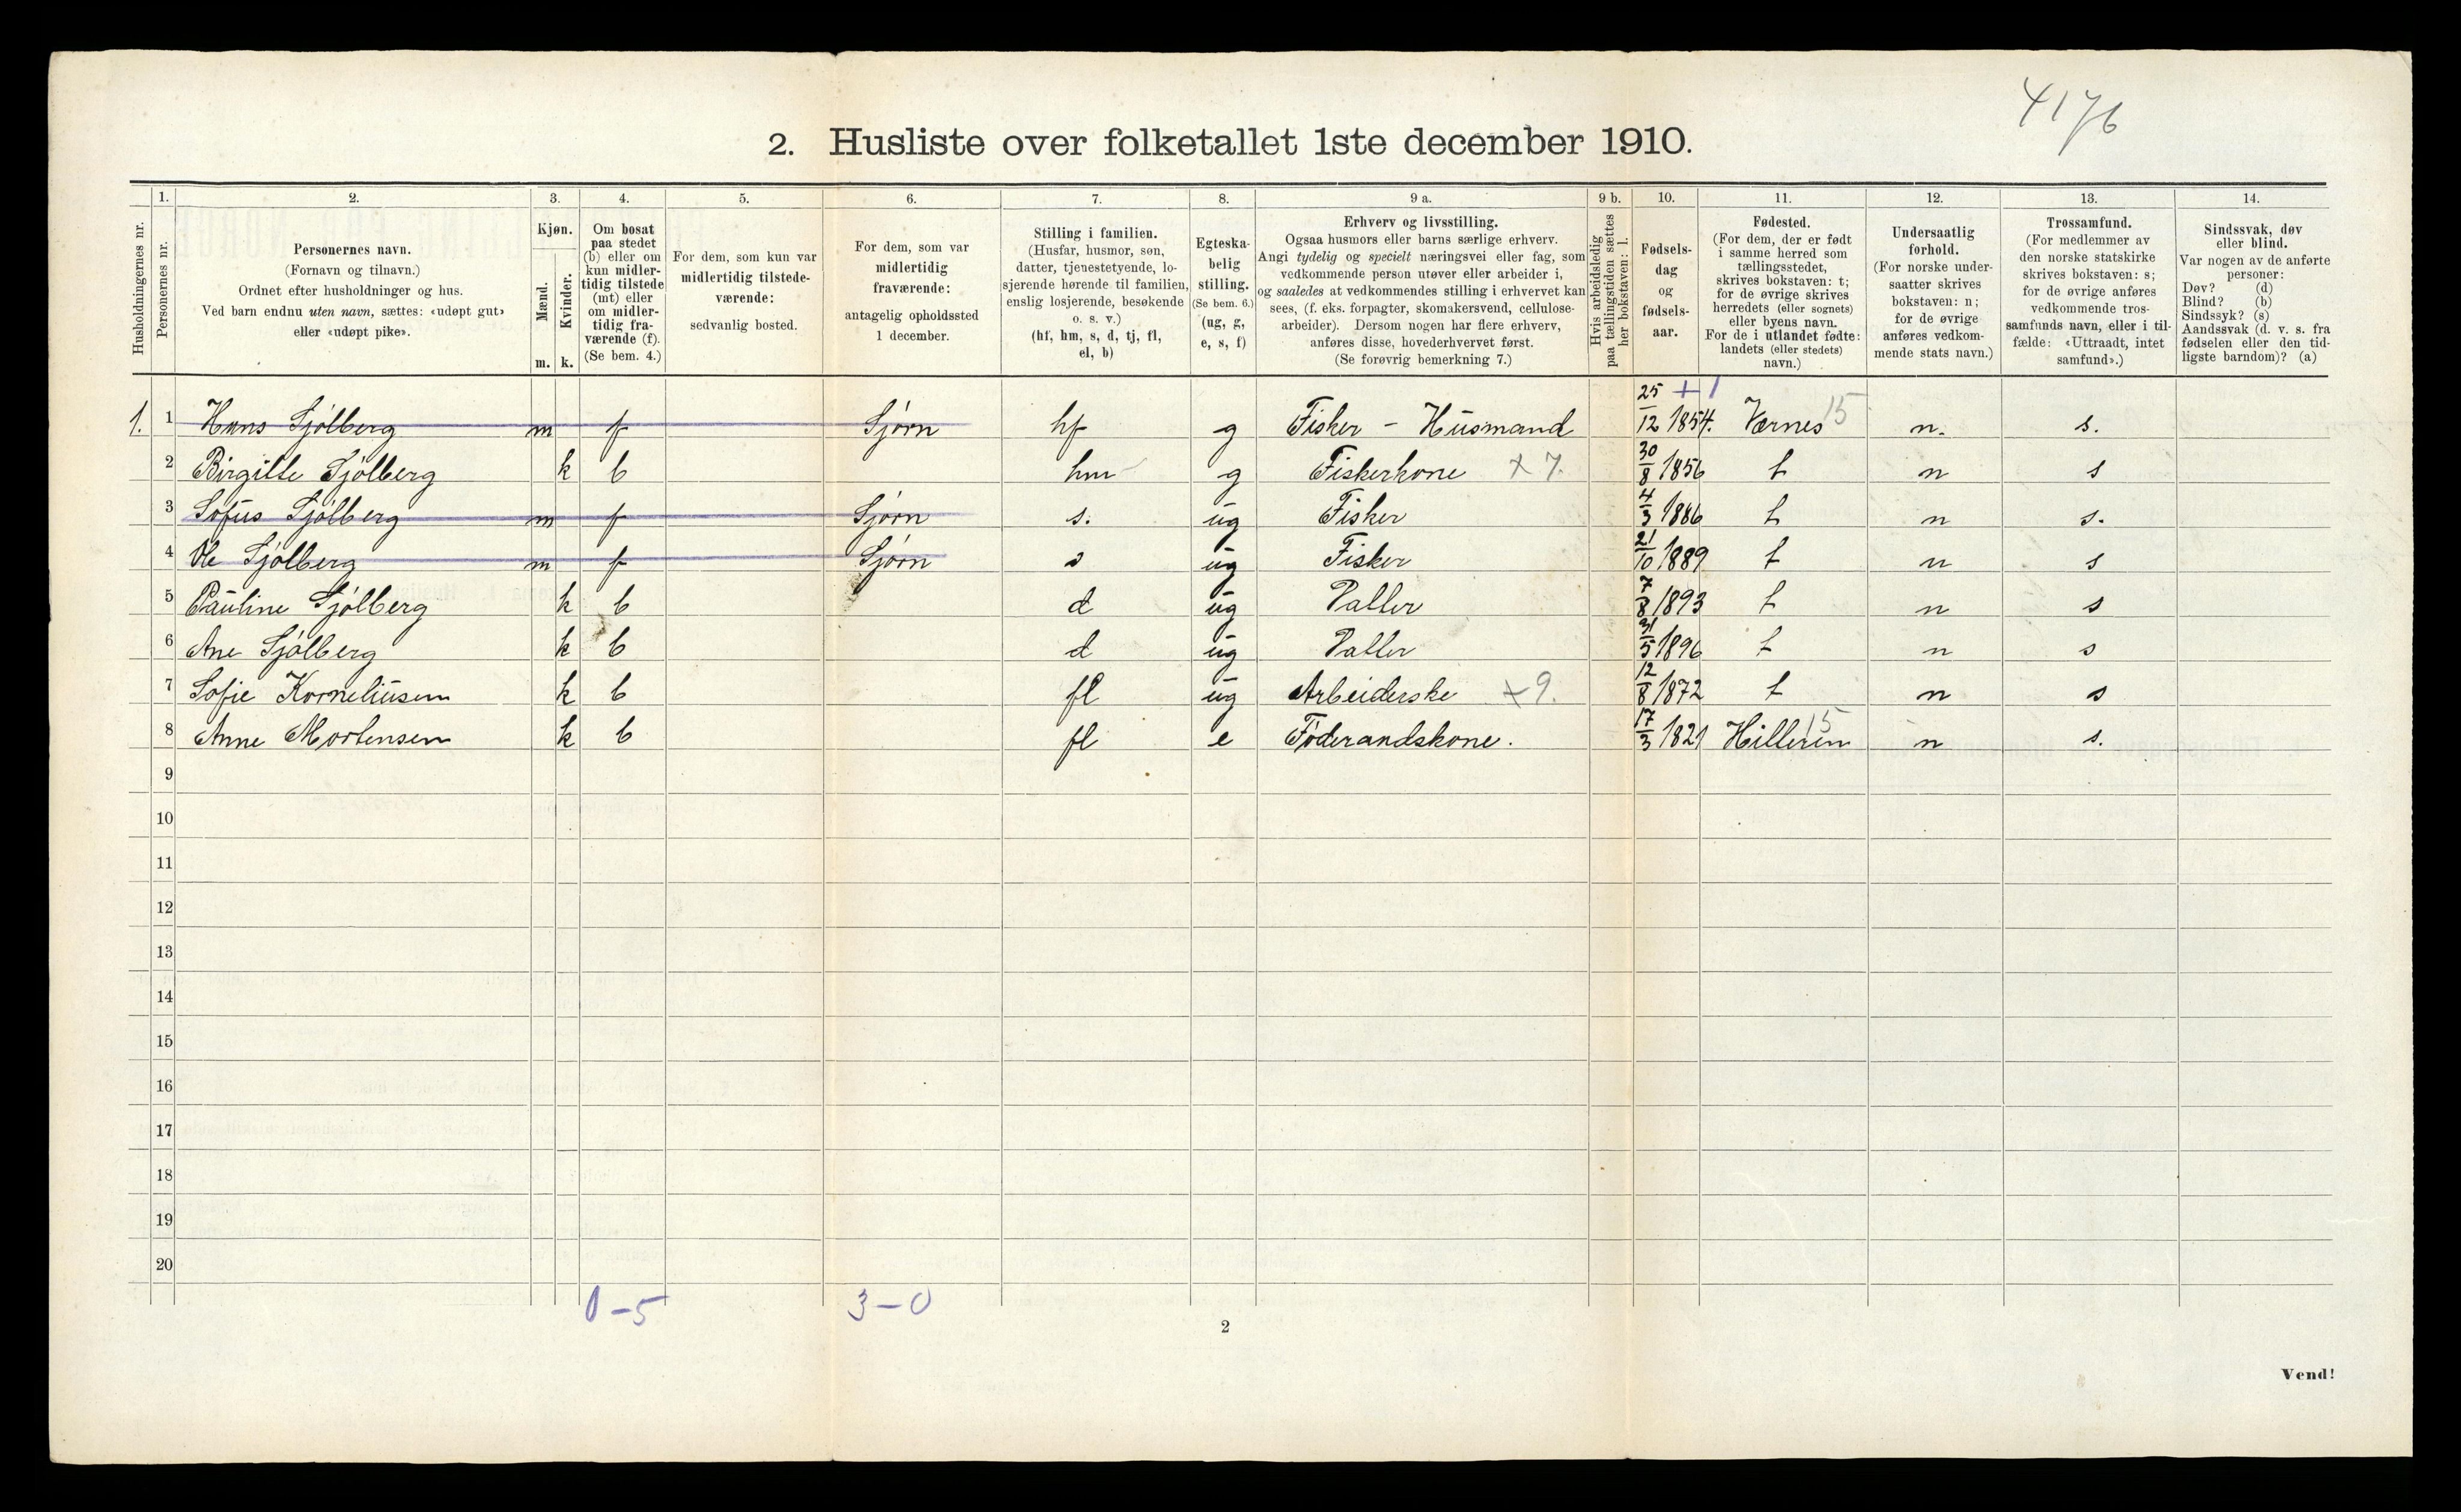 4176
2. Husliste over folketallet 1ste december 1910.
Husholdningernes nr.
1.
Personernes nr.
2.
Personernes navn.
(Fornavn og tilnavn.)
Ordnet efter husholdninger og hus.
Ved barn endnu uten navn, sættes: «udøpt gut»
eller «udøpt pike».
3.
Kjøn.
Mænd.
Kvinder.
m. k.
4.
Om bosat
paa stedet
(b) eller om
kun midler-
tidig tilstede
(mt) eller
om midler-
tidig fra-
værende (f).
(Se bem. 4.)
5.
For dem, som kun var
midlertidig tilstede-
værende:
sedvanlig bosted.
6.
For dem, som var
midlertidig
fraværende:
antagelig opholdssted
1 december.
7.
Stilling i familien.
(Husfar, husmor, søn,
datter, tjenestetyende, lo-
sjerende hørende til familien,
enslig losjerende, besøkende
o. s. v.)
(hf, hm, s, d, tj, fl,
el, b)
8.
Egteska-
belig
stilling.
(Se bem. 6.)
(ug, g,
e, s, f)
9 a.
Erhverv og livsstilling.
Ogsaa husmors eller barns særlige erhverv.
Angi tydelig og specielt næringsvei eller fag, som
vedkommende person utøver eller arbeider i,
og saaledes at vedkommendes stilling i erhvervet kan
sees, (f. eks. forpagter, skomakersvend, cellulose-
arbeider). Dersom nogen har flere erhverv,
anføres disse, hovederhvervet først.
(Se forøvrig bemerkning 7.)
9 b.
Hvis arbeidsledig
paa tællingstiden sættes
her bokstaven: l.
10.
Fødsels-
dag
og
fødsels-
aar.
11.
Fødested.
(For dem, der er født
i samme herred som
tællingsstedet,
skrives bokstaven: t;
for de øvrige skrives
herredets (eller sognets)
eller byens navn.
For de i utlandet fødte:
landets (eller stedets)
navn.)
12.
Undersaatlig
forhold.
(For norske under-
saatter skrives
bokstaven: n;
for de øvrige
anføres vedkom-
mende stats navn.)
13.
Trossamfund.
(For medlemmer av
den norske statskirke
skrives bokstaven: s;
for de øvrige anføres
vedkommende tros-
samfunds navn, eller i til-
fælde: «Uttraadt, intet
samfund».)
14.
Sindssvak, døv
eller blind.
Var nogen av de anførte
personer:
Døv? (d)
Blind? (b)
Sindssyk? (s)
Aandssvak (d. v. s. fra
fødselen eller den tid-
ligste barndom)? (a)
1. 1 Hans Sjølberg m f Sjørn hf g Fisker - Husmand 25/12 1854. Værnes 15 n. s.
2 Birgitte Sjølberg k b hm g Fiskerkone x 7. 30/8 1856 t n s
3 Sofus Sjølberg m f Sjørn s. ug Fisker 4/3 1886 t n s.
4 Ole Sjølberg m f Sjørn s ug Fisker 21/10 1889 t n s
5 Pauline Sjølberg k b d ug Datter 7/8 1893 t n s
6 Ane Sjølberg k b d ug Datter 31/5 1896 t n s
7 Sofie Korneliusen k b fl ug Arbeiderske x 9. 12/8 1872 t n s
8 Anne Mortensen k b fl e Føderandskone. 17/3 1821 Hilleren 15 n s.
9
10
11
12
13
14
15
16
17
18
19
20
0-5 3-0
2
Vend!